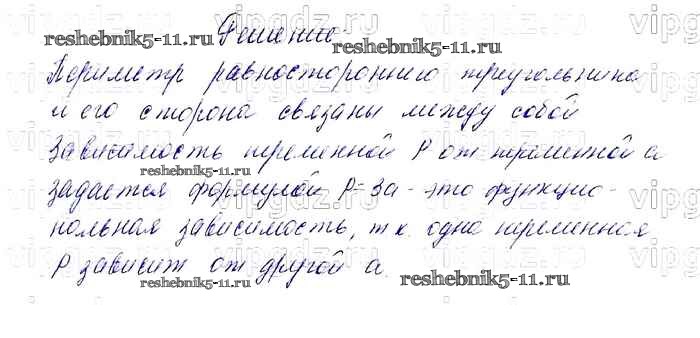 Решение.
Периметр равностороннего треугольника
и его сторона связаны между собой
Зависимость переменной P от переменной a
задается формулой P=3a - это функцио-
нальная зависимость, т.к. одна переменная
P зависит от другой a.
reshebnik5-11.ru
reshebnik5-11.ru
reshebnik5-11.ru
reshebnik5-11.ru
reshebnik5-11.ru
vipgdz.ru